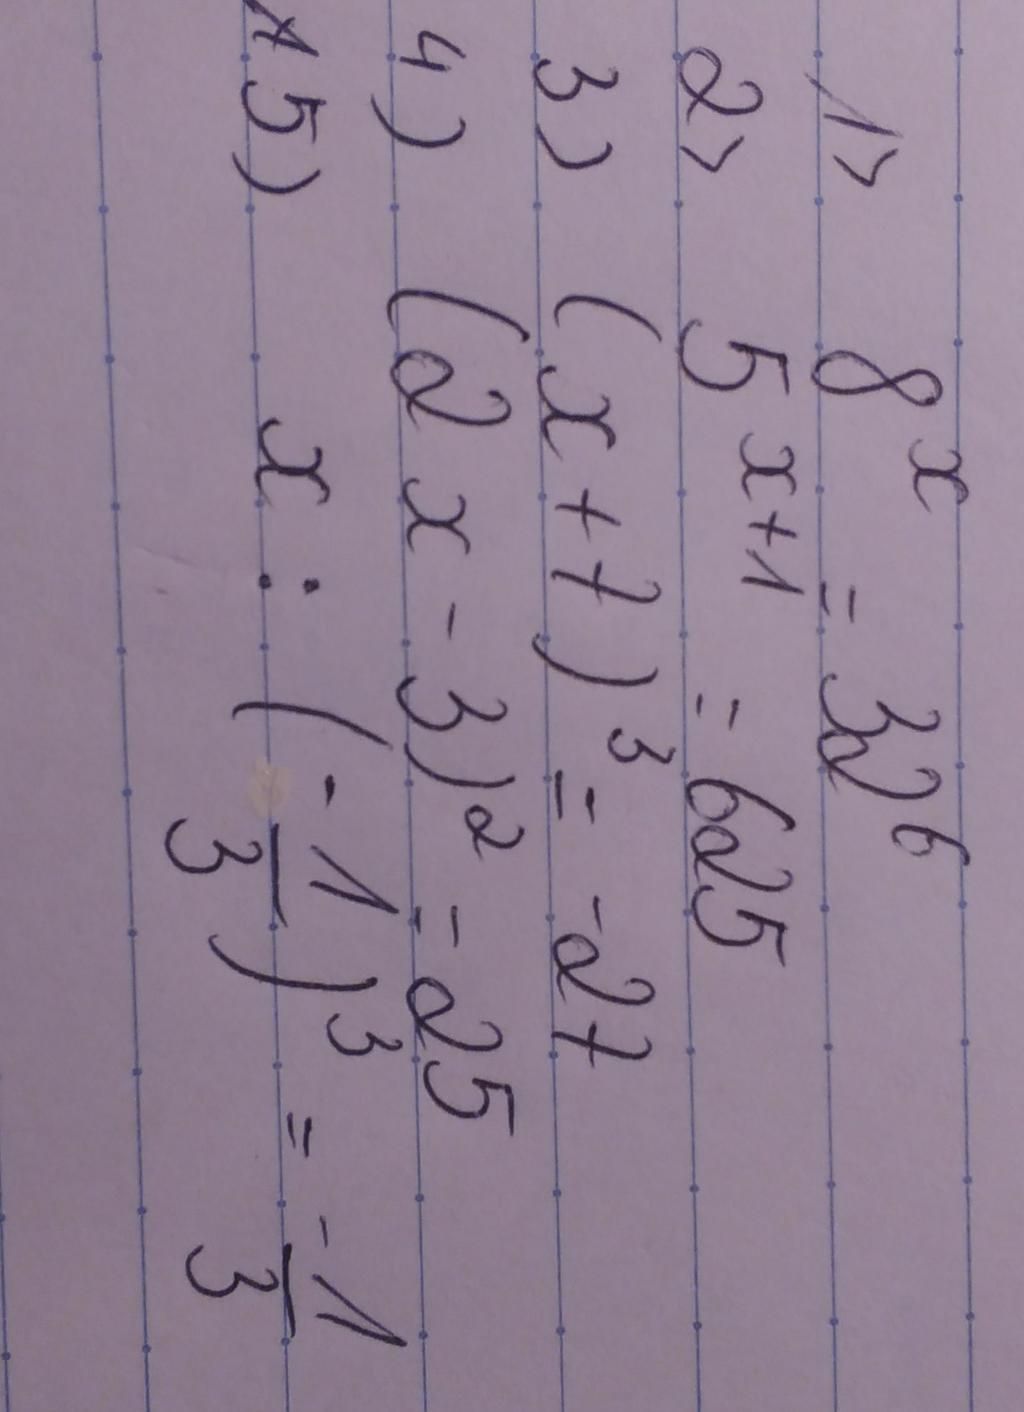 1) 8^x = 32^6
2) 5^{x+1} = 625
3) (x+7)^3 = -27
4) (2x-3)^2 = 25
* 5) x : (-1/3)^3 = -1/3